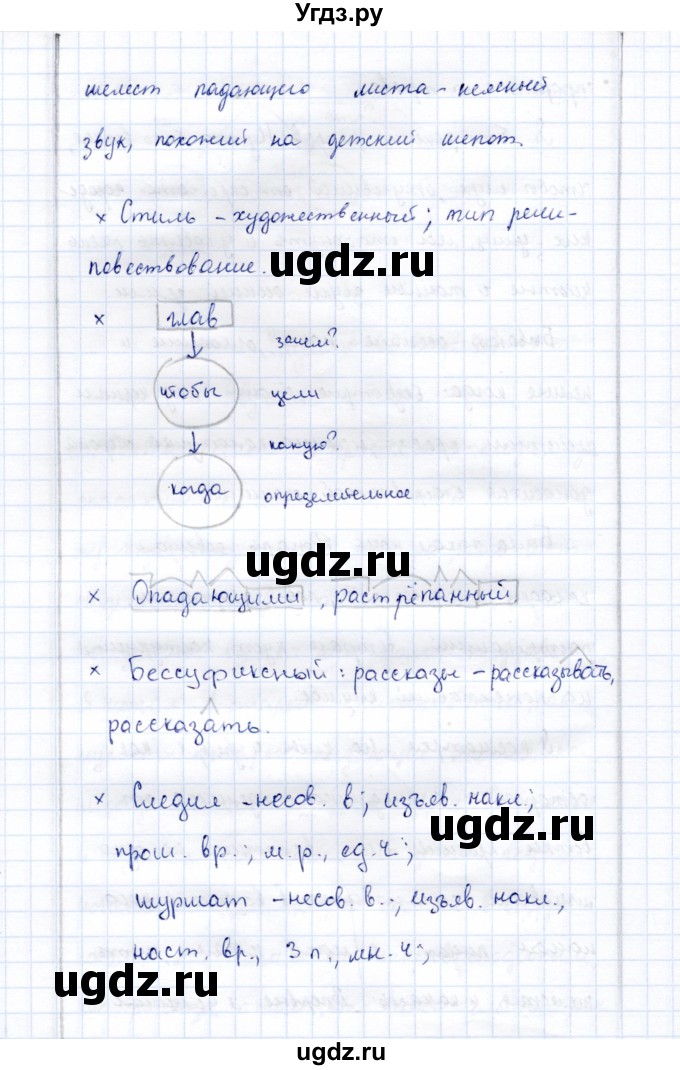 Угдз.ру
шелест падающего листа - неясный
звук, похожий на детский шепот.
× Стиль - художественный; тип речи -
повествование.
ugdz.ru
× глав
зачем?
чтобы цели
какую?
когда определительное
ugdz.ru
× Опадающими, растрёпанный
× Бессуфиксный: рассказы - рассказывать,
рассказать.
× Следил - несов. в; изъяв. накл;
ugdz.ru
прош. вр.; м.р., ед.ч;
шуршат - несов. в.; изъяв. накл.,
наст. вр., 3 л., мн. ч;
ugdz.ru
ugdz.ru